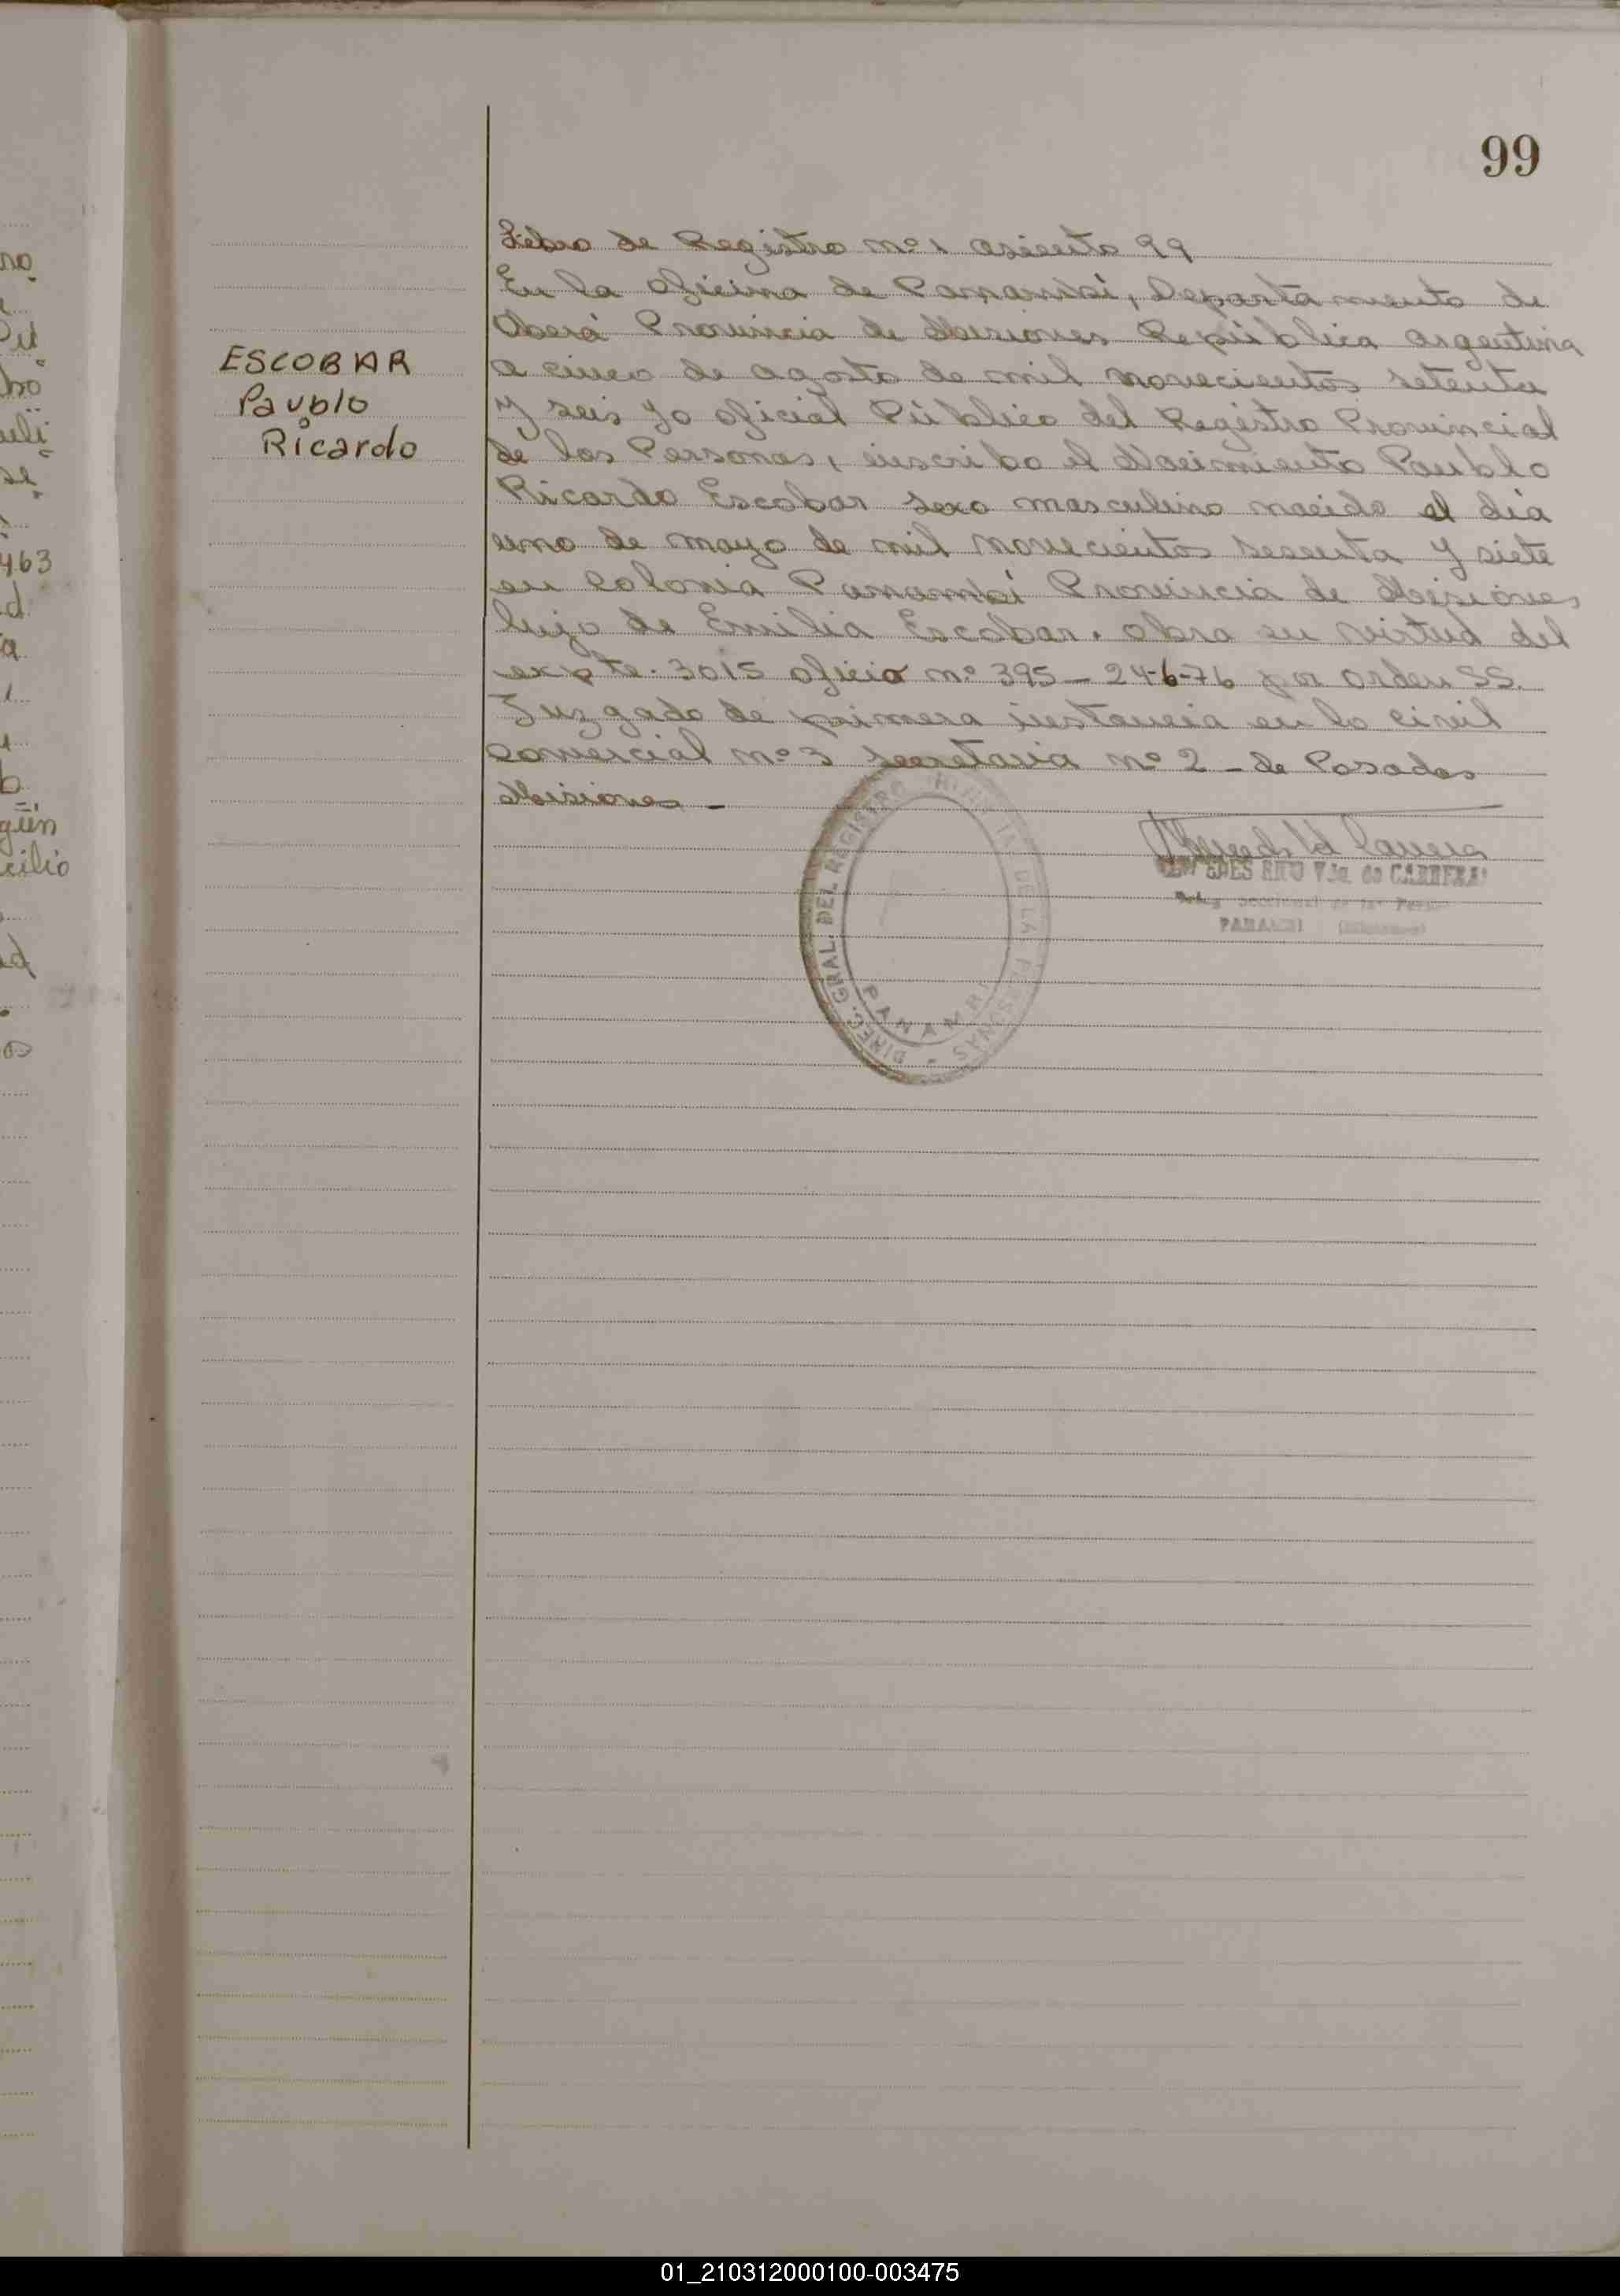 99
ESCOBAR
Pavblo
Ricardo
Libro de Registro nº 1 asiento 99
En la Oficina de Panambí, Departamento de
Oberá Provincia de Misiones República Argentina
a cinco de agosto de mil novecientos setenta
y seis yo oficial Público del Registro Provincial
de las Personas, inscribo el Nacimiento Paublo
Ricardo Escobar sexo masculino nacido el día
uno de mayo de mil novecientos sesenta y siete
en Colonia Panambí Provincia de Misiones
hijo de Emilia Escobar. obra en virtud del
expte. 3015 oficio nº 395 - 24-6-76 por orden SS.
Juzgado de primera instancia en lo civil
comercial nº 3 secretaria nº 2 - de Posadas
Misiones -
DIREC. GRAL. DEL REGISTRO DE LA PERSONAS
PANAMBI
Vda. de CARRERA
Seccional de las
PANAMBI (Misiones)
463
gún
cilio
01_210312000100-003475